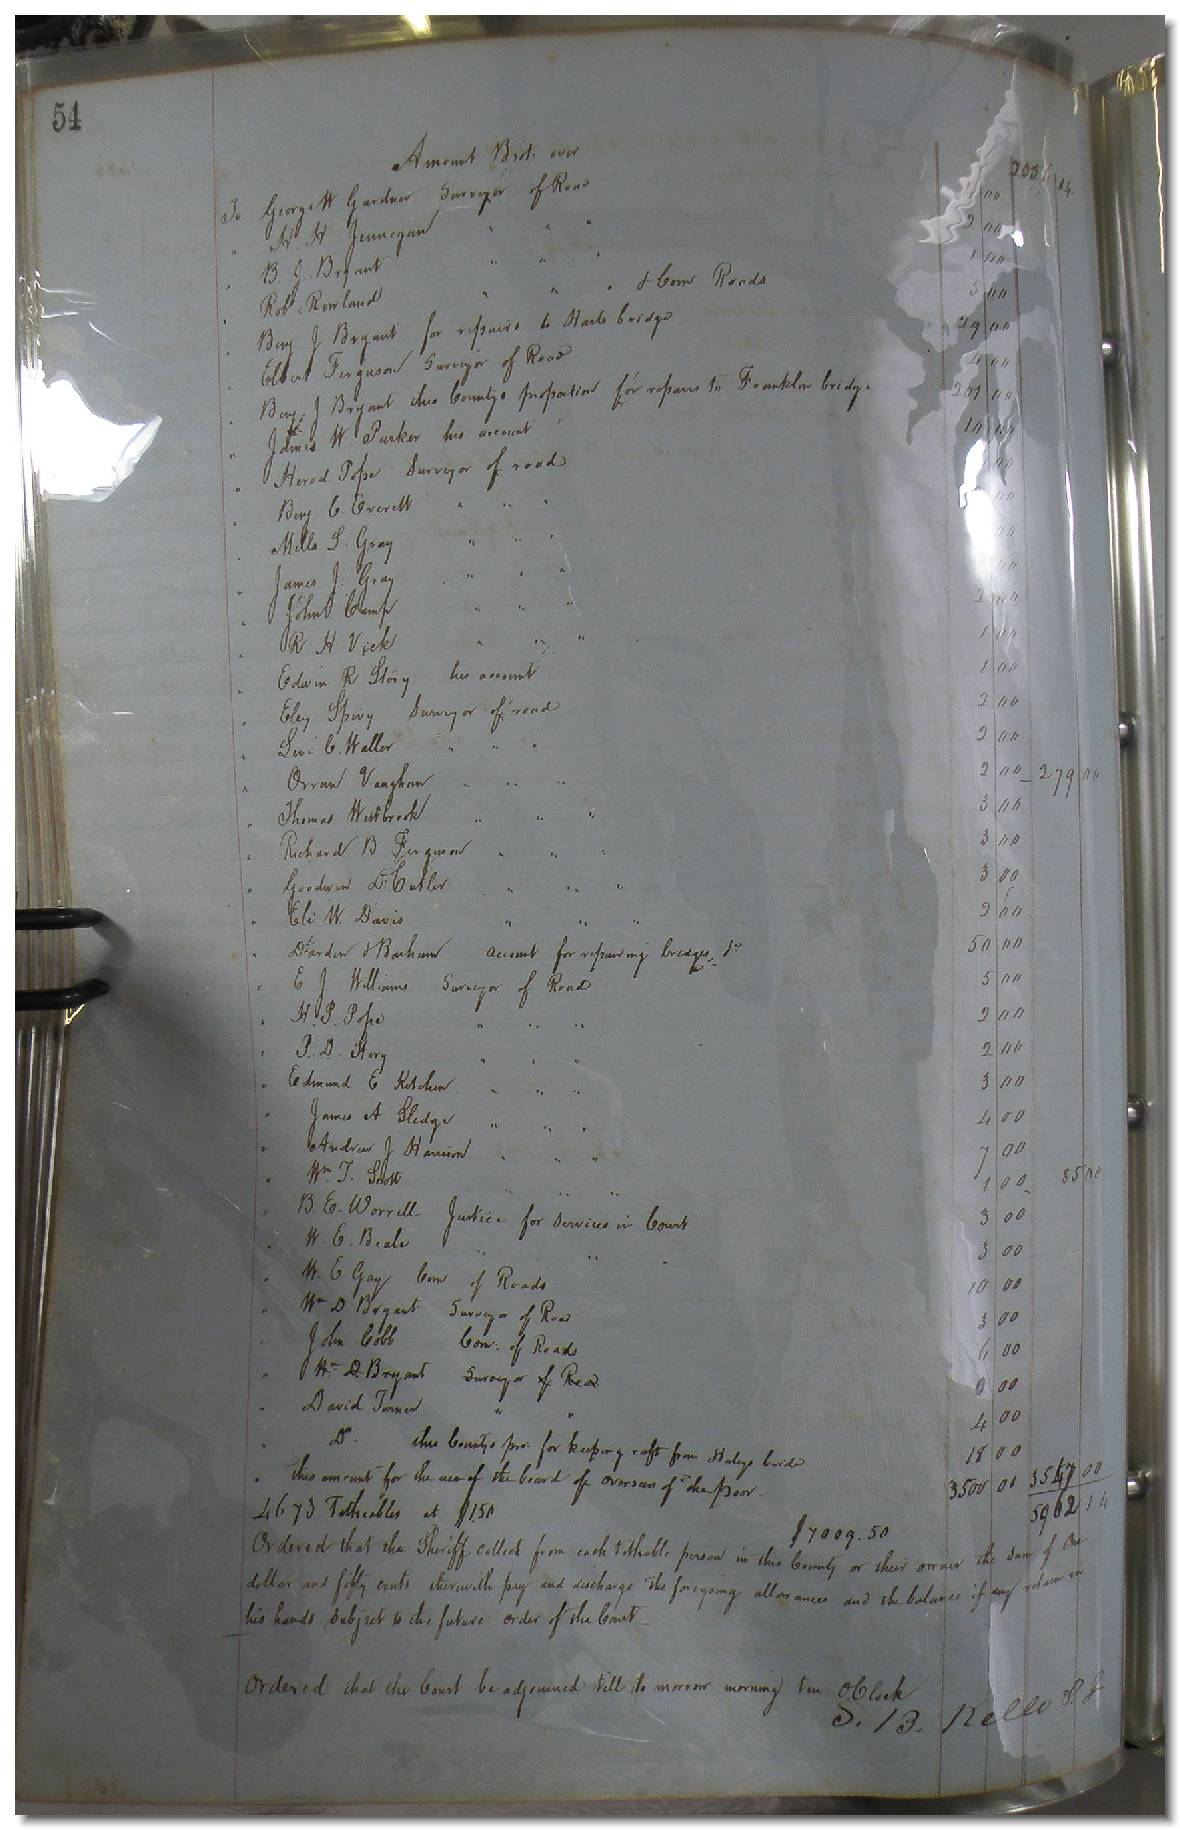 54
Amount Brot. over 14
To George W Gardner Surveyor of Road 00
" W. H Jennegan " " " 2 00
" B J. Bryant " " " 1 00
" Robt Rowland " " " & Com Roads 5 00
" Benj J Bryant for repairs to Harts bridge 29 00
" Elbert Ferguson Surveyor of Road 4 00
" Benj. J Bryant this Countys proportion for repairs to Franklin bridge 201 00
" James W. Parker his account 10 00
" Herod Pope Surveyor of road 00
" Benj C Everett " " " 00
" Mills L. Gray " " " 00
" James J. Gray " " " 00
" John Camp " " " 2 00
" R H Vick " " " 1 00
" Edwin R Story his account 1 00
" Eley Spivy Surveyor of road 2 00
" Levi C. Waller " " " 2 00
" Orran Vaughan " " " 2 00 279 00
" Thomas Westbrook " " " 3 00
" Richard B Ferguson " " " 3 00
" Goodwin D. Cutler " " " 3 00
" Eli W. Davis " " " 2 00
" Darden & Barham account for repairing bridges &c 50 00
" E J Williams Surveyor of Road 5 00
" H. P. Pope " " " 2 00
" P. D. Story " " " 2 00
" Edmund E Kitchen " " " 3 00
" James A Sledge " " " 4 00
" Andrew J Harrison " " " 7 00
" Wm T. Scott " " " 1 00 85 00
" B. E. Worrell Justice for Services in Court 3 00
" W. E. Beale " " " 3 00
" W. E Gay Com of Roads 10 00
" Wm D Bryant Surveyor of Road 3 00
" John Cobb Com. of Roads 6 00
" Wm D. Bryant Surveyor of Road 0 00
" David Turner " " 4 00
" Do. this Countys pro. for keeping raft from Haleys bridge 18 00
" this amount for the use of the board of overseers of the poor 3500 00 3547 00
4673 Titheables at $1.50 5962 14
$7009.50
Ordered that the Sheriff collect from each tithable person in this County or their owner the sum of One
dollar and fifty cents therewith pay and discharge the foregoing allowances and the balance if any retain in
his hands subject to the future order of the Court
Ordered that the Court be adjourned till to morrow morning ten OClock
S. B. Kello P. J